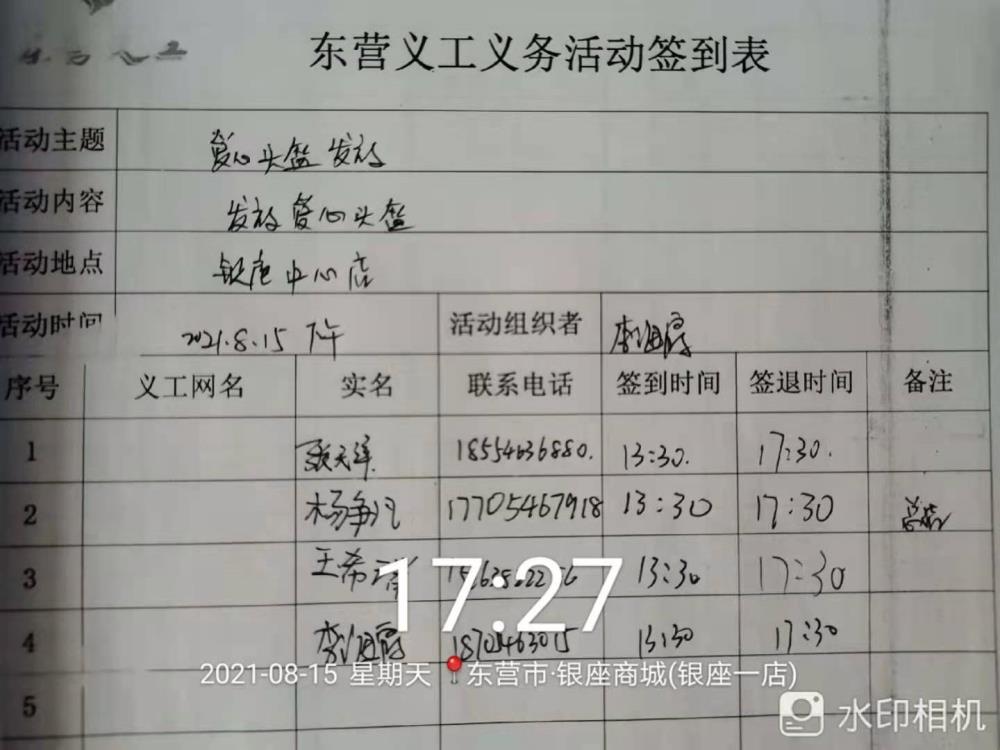 东营义工义务活动签到表
活动主题 爱心头盔发放
活动内容 发放爱心头盔
活动地点 银座中心店
活动时间 2021.8.15 下午 活动组织者 李
序号 义工网名 实名 联系电话 签到时间 签退时间 备注
1 天 18554636880. 13:30. 17:30.
2 杨争 17705467918 13:30 17:30
3 王希 13:30 17:30
4 李 13:30 17:30
17:27
2021-08-15 星期天 东营市·银座商城(银座一店)
5
水印相机